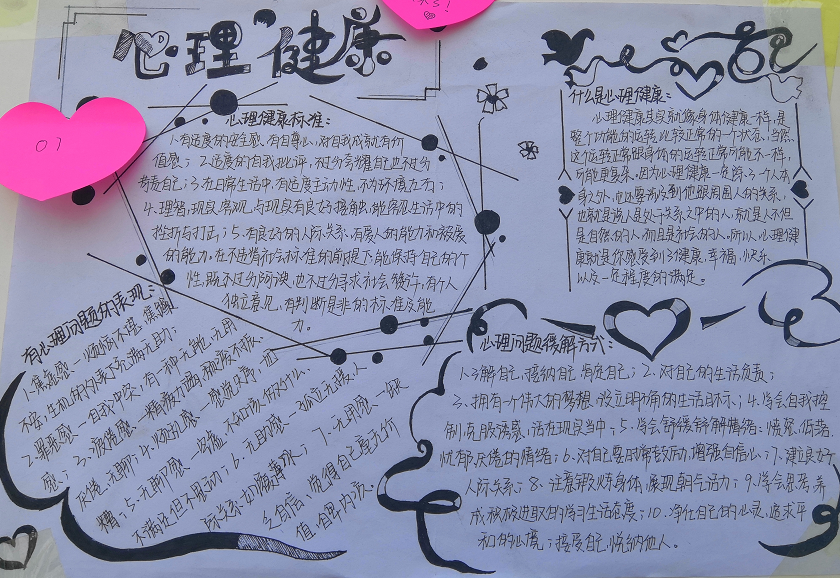 心理健康
07
心理健康标准:
1.有适度的安全感,有自尊心,对自我成就有价
值感; 2.适度的自我批评,不过分夸耀自己也不过分
苛责自己;3.在日常生活中,有适度主动性,不为环境左右;
4.理智,现实,客观,与现实有良好接触,能容忍生活中的
挫折与打击; 5.有良好的人际关系,有爱人的能力和被爱
的能力,在不违背社会标准的前提下能保持自己的个
性,既不过分阿谀,也不过分寻求社会赞许,有个人
独立意见,有判断是非的标准及能
力。
什么是心理健康:
心理健康其实就像身体健康一样,是
整个功能的运转比较正常的一个状态,当然,
这个运转正常跟身体的运转正常可能不一样,
可能更复杂,因为心理健康一定除了一个人本
身之外,他还要涉及到他跟周围人的关系,
也就是说人是处于关系之中的人,就是人不但
是自然的人,而且是社会的人。所以,心理健
康就是你感受到了健康,幸福,快乐,
以及一定程度的满足。
有心理问题的表现:
1.焦虑感、一烦恼不堪,焦躁
不安,生机的外表下充满无助;
2.罪恶感一自我冲突,有一种无能,无用
感;3.疲倦感、一精疲力竭,颓废不振,
厌倦,无聊;4.烦乱感、一感觉失序,
糟;5.无聊感、一空虚,不知该做什么,
不满足但不愿动;6.无助感、一孤立无援,人
际关系如履薄冰;7.无用感一缺
乏自信,觉得自己毫无价
值,自卑内疚。
心理问题缓解方式:
1.了解自己,接纳自己,肯定自己;2.对自己的生活负责;
3.拥有一个伟大的梦想,设立明确的生活目标;4.学会自我控
制,克服诱惑,活在现实当中;5.学会舒缓排解情绪:愤怒,低落,
忧郁,厌倦的情绪;6.对自己要时常鼓励,增强自信心;7.建立良好
人际关系;8.注意锻炼身体,展现朝气活力;9.学会思考,养
成积极进取的学习生活态度;10.净化自己的心灵,追求平
和的心境;接受自己,悦纳他人。